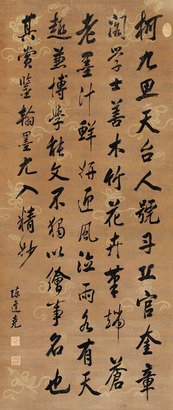 柯九思天台人號丹丘官奎章
閣學士善木竹花卉筆端蒼
老墨汁鮮妍迎風泣雨各有天
趣兼博學能文不獨以繪事名也
其賞鑒翰墨尤入精妙
陳逵亮